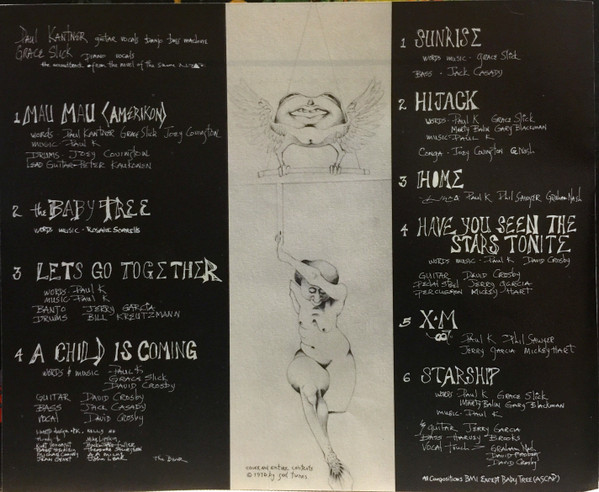 PAUL KANTNER guitar vocals banjo bass machine
GRACE SLICK piano vocals
the soundtrack from the novel of the same
1 MAU MAU (AMERIKON)
words - Paul Kantner Grace Slick Joey Covington
music - Paul K
DRUMS JOEY COVINGTON
LEAD GUITAR - PETER KAUKONEN
2 the BABY TREE
words music - Rosalie Sorrells
3 LETS GO TOGETHER
words Paul K
MUSIC - Paul K
BANJO JERRY GARCIA
DRUMS BILL KREUTZMANN
4 A CHILD IS COMING
WORDS & MUSIC - PAUL K
GRACE SLICK
DAVID CROSBY
GUITAR DAVID CROSBY
BASS JACK CASADY
VOCAL DAVID CROSBY
thanks to
Kurt Vonnegut
Jean Genet
The Book
cover and entire contents
© 1970 by
1 SUNRISE
WORDS MUSIC - Grace Slick
BASS - Jack CASADY
2 HIJACK
WORDS - Paul K Grace Slick
Marty Balin Gary Blackman
music - Paul K
Conga - Joey Covington G Nash
3 HOME
Paul K Phil Sawyer Graham Nash
4 HAVE YOU SEEN THE
STARS TONITE
words music - Paul K David Crosby
GUITAR DAVID CROSBY
Pedal Steel JERRY GARCIA
PERCUSSION MICKEY HART
5 X-M
Paul K Phil Sawyer
JERRY GARCIA MICKEY HART
6 STARSHIP
WORDS Paul K Grace Slick
MARTY Balin Gary Blackman
music - Paul K
guitar JERRY GARCIA
BASS - HARVEY BROOKS
Vocal - Graham Nash
David Crosby
All Compositions BMI EXCEPT BABY TREE (ASCAP)